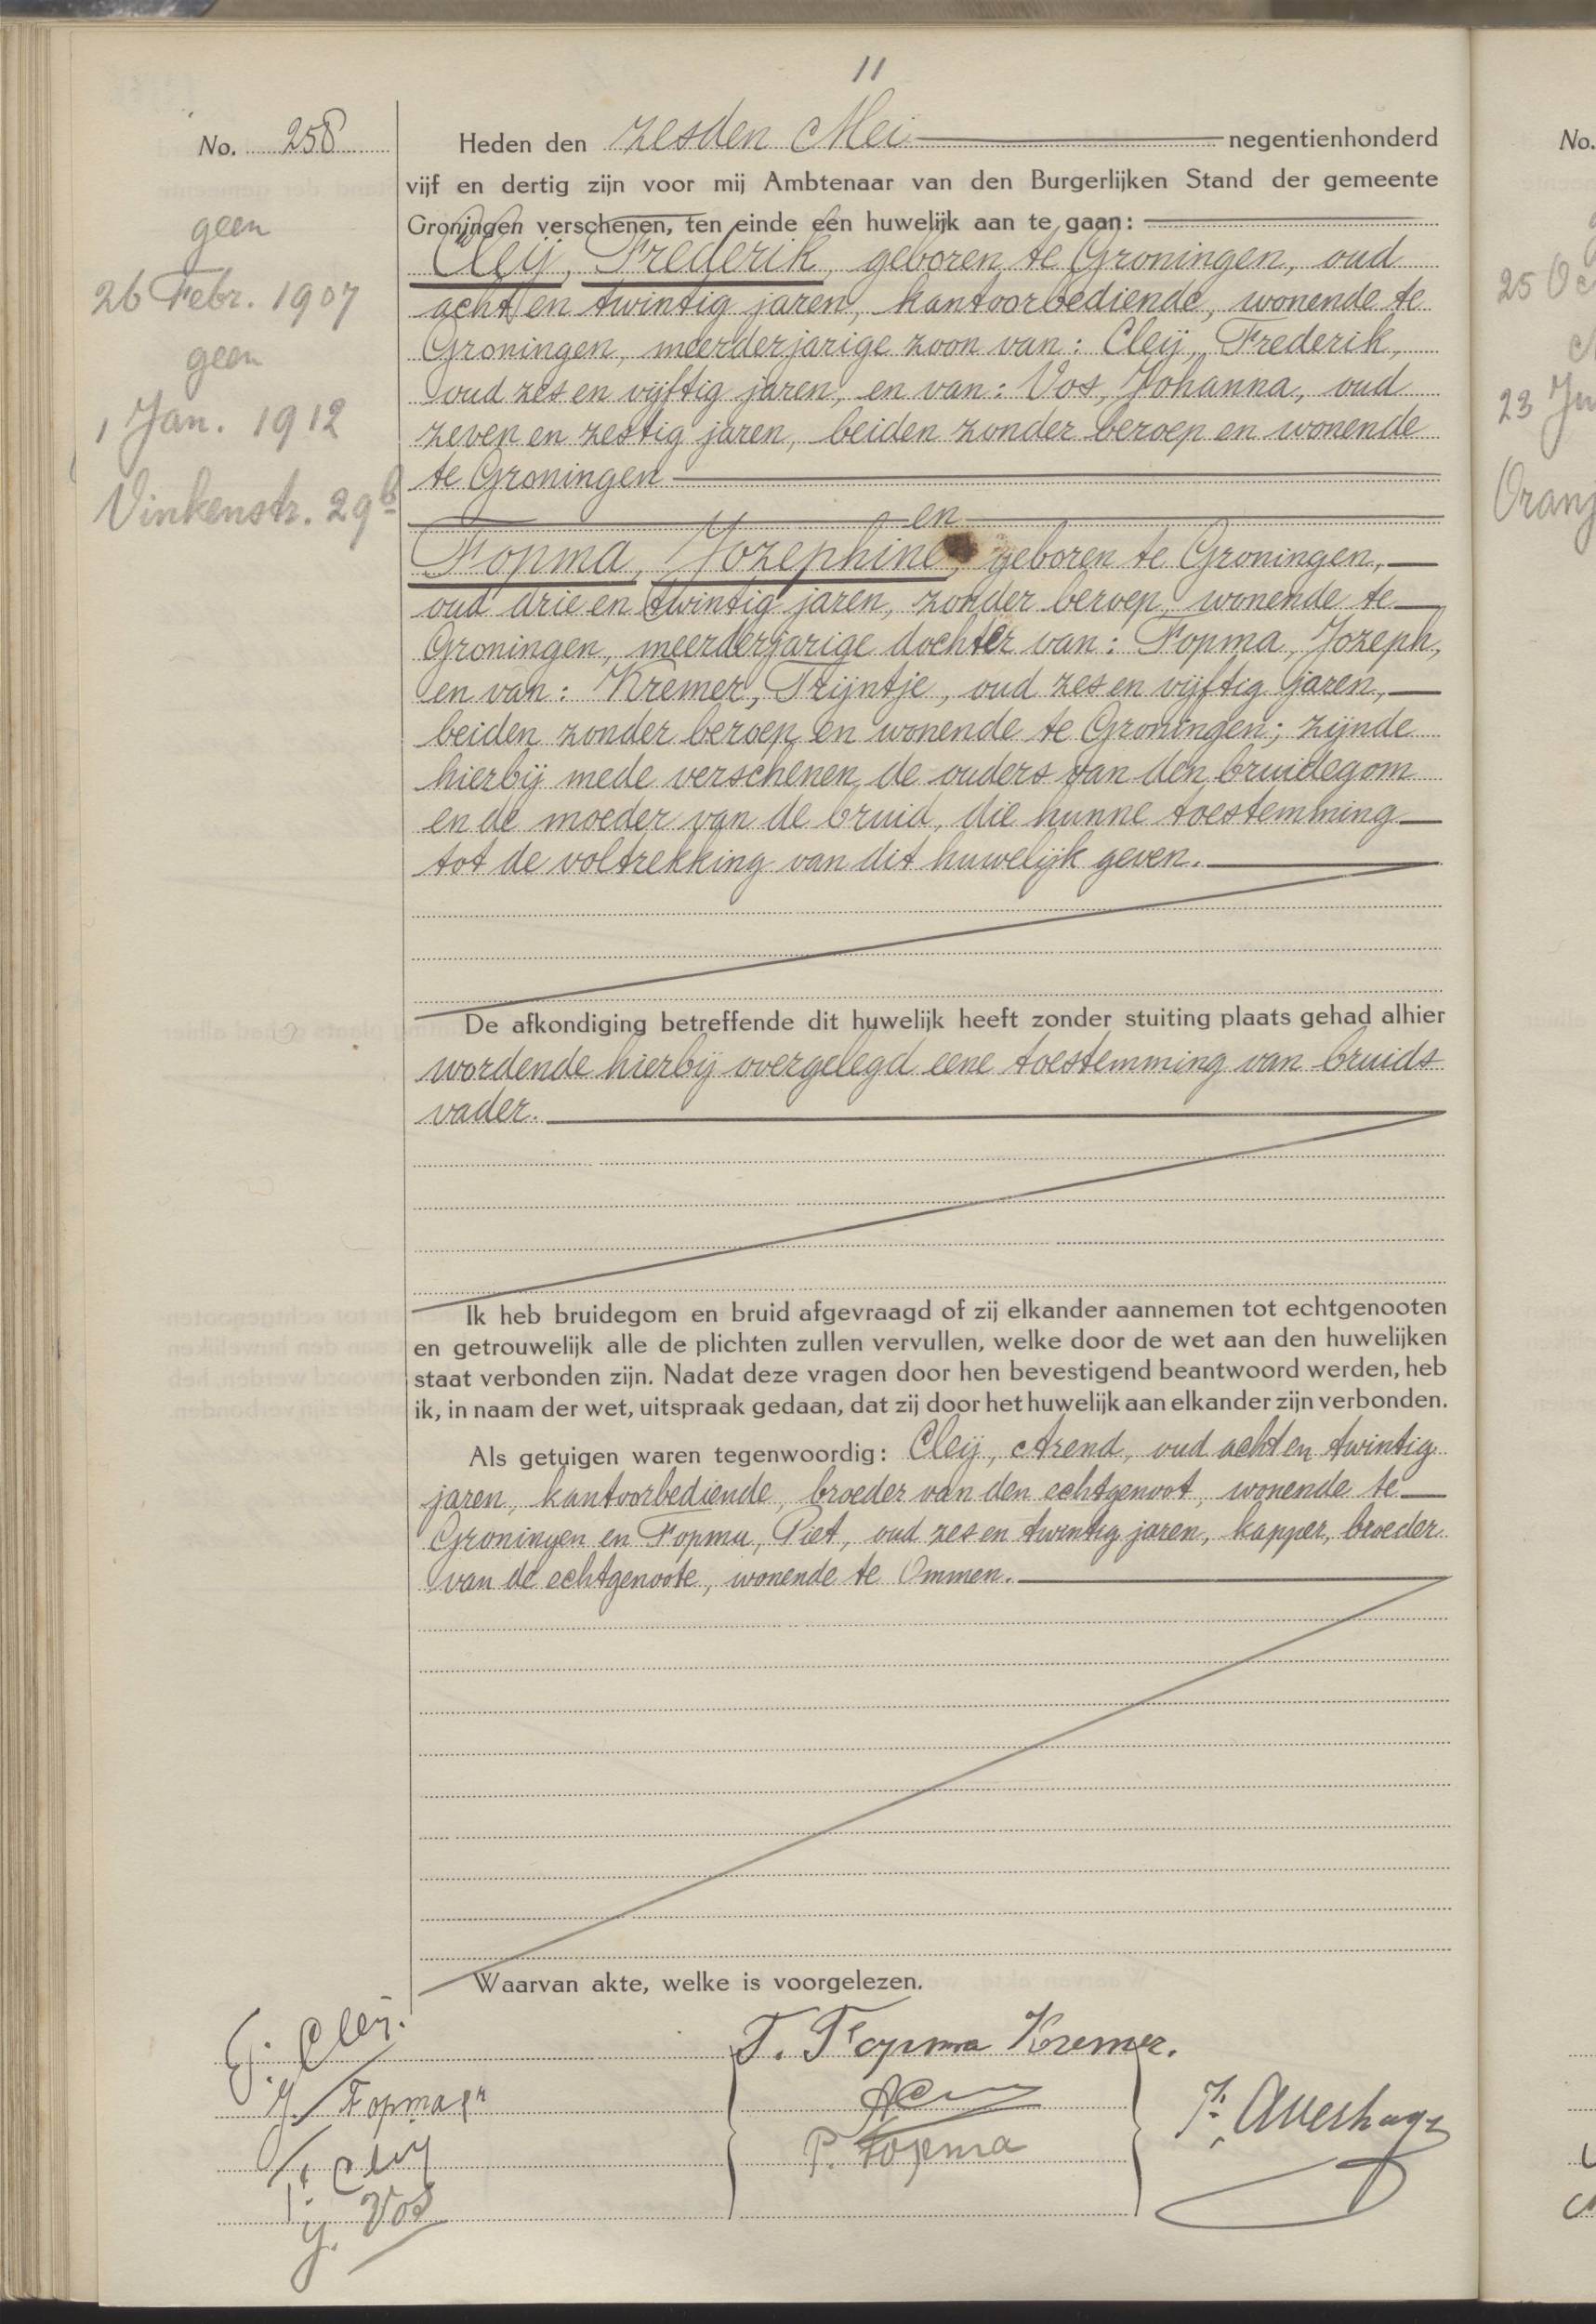 11
No. 258
Heden den zesden Mei negentienhonderd
vijf en dertig zijn voor mij Ambtenaar van den Burgerlijken Stand der gemeente
Groningen verschenen, ten einde een huwelijk aan te gaan:
Cleij, Frederik, geboren te Groningen, oud
acht en twintig jaren, kantoorbediende, wonende te
Groningen, meerderjarige zoon van: Cleij, Frederik,
oud zes en vijftig jaren, en van: Vos, Johanna, oud
zeven en zestig jaren, beiden zonder beroep en wonende
te Groningen
en
Fopma, Jozephine, geboren te Groningen,
oud drie en twintig jaren, zonder beroep, wonende te
Groningen, meerderjarige dochter van: Fopma, Jozeph,
en van: Kremer, Trijntje, oud zes en vijftig jaren,
beiden zonder beroep en wonende te Groningen; zijnde
hierbij mede verschenen de ouders van den bruidegom
en de moeder van de bruid, die hunne toestemming
tot de voltrekking van dit huwelijk geven.
geen
26 Febr. 1907
geen
1 Jan. 1912
Vinkenstr. 29b
De afkondiging betreffende dit huwelijk heeft zonder stuiting plaats gehad alhier
wordende hierbij overgelegd eene toestemming van bruids
vader.
Ik heb bruidegom en bruid afgevraagd of zij elkander aannemen tot echtgenooten
en getrouwelijk alle de plichten zullen vervullen, welke door de wet aan den huwelijken
staat verbonden zijn. Nadat deze vragen door hen bevestigend beantwoord werden, heb
ik, in naam der wet, uitspraak gedaan, dat zij door het huwelijk aan elkander zijn verbonden.
Als getuigen waren tegenwoordig: Cleij, Arend, oud acht en twintig
jaren, kantoorbediende, broeder van den echtgenoot, wonende te
Groningen en Fopma, Piet, oud zes en twintig jaren, kapper, broeder
van de echtgenoote, wonende te Ommen.
Waarvan akte, welke is voorgelezen.
Cleij.
J. Fopma
F. Cleij
J. Vos
T. Fopma Kremer.
P. Fopma
No.
25 Oc
23 Ju
Oranj